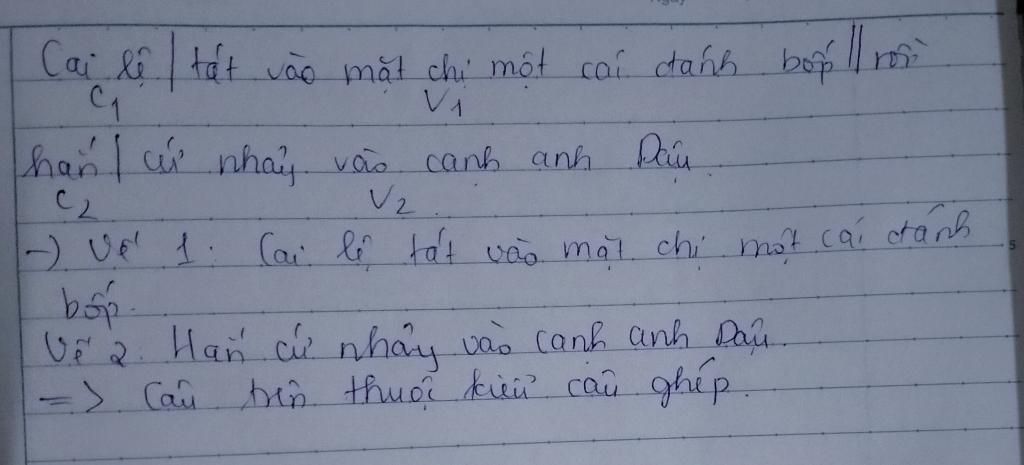 Cai lệ | tát vào mặt chị một cái đánh bốp || rồi
C1 V1
hắn | cứ nhảy vào cạnh anh Dậu.
C2 V2.
-) Vế 1: Cai lệ tát vào mặt chị một cái đánh
bốp.
Vế 2. Hắn cứ nhảy vào cạnh anh Dậu.
=> Câu trên thuộc kiểu câu ghép.